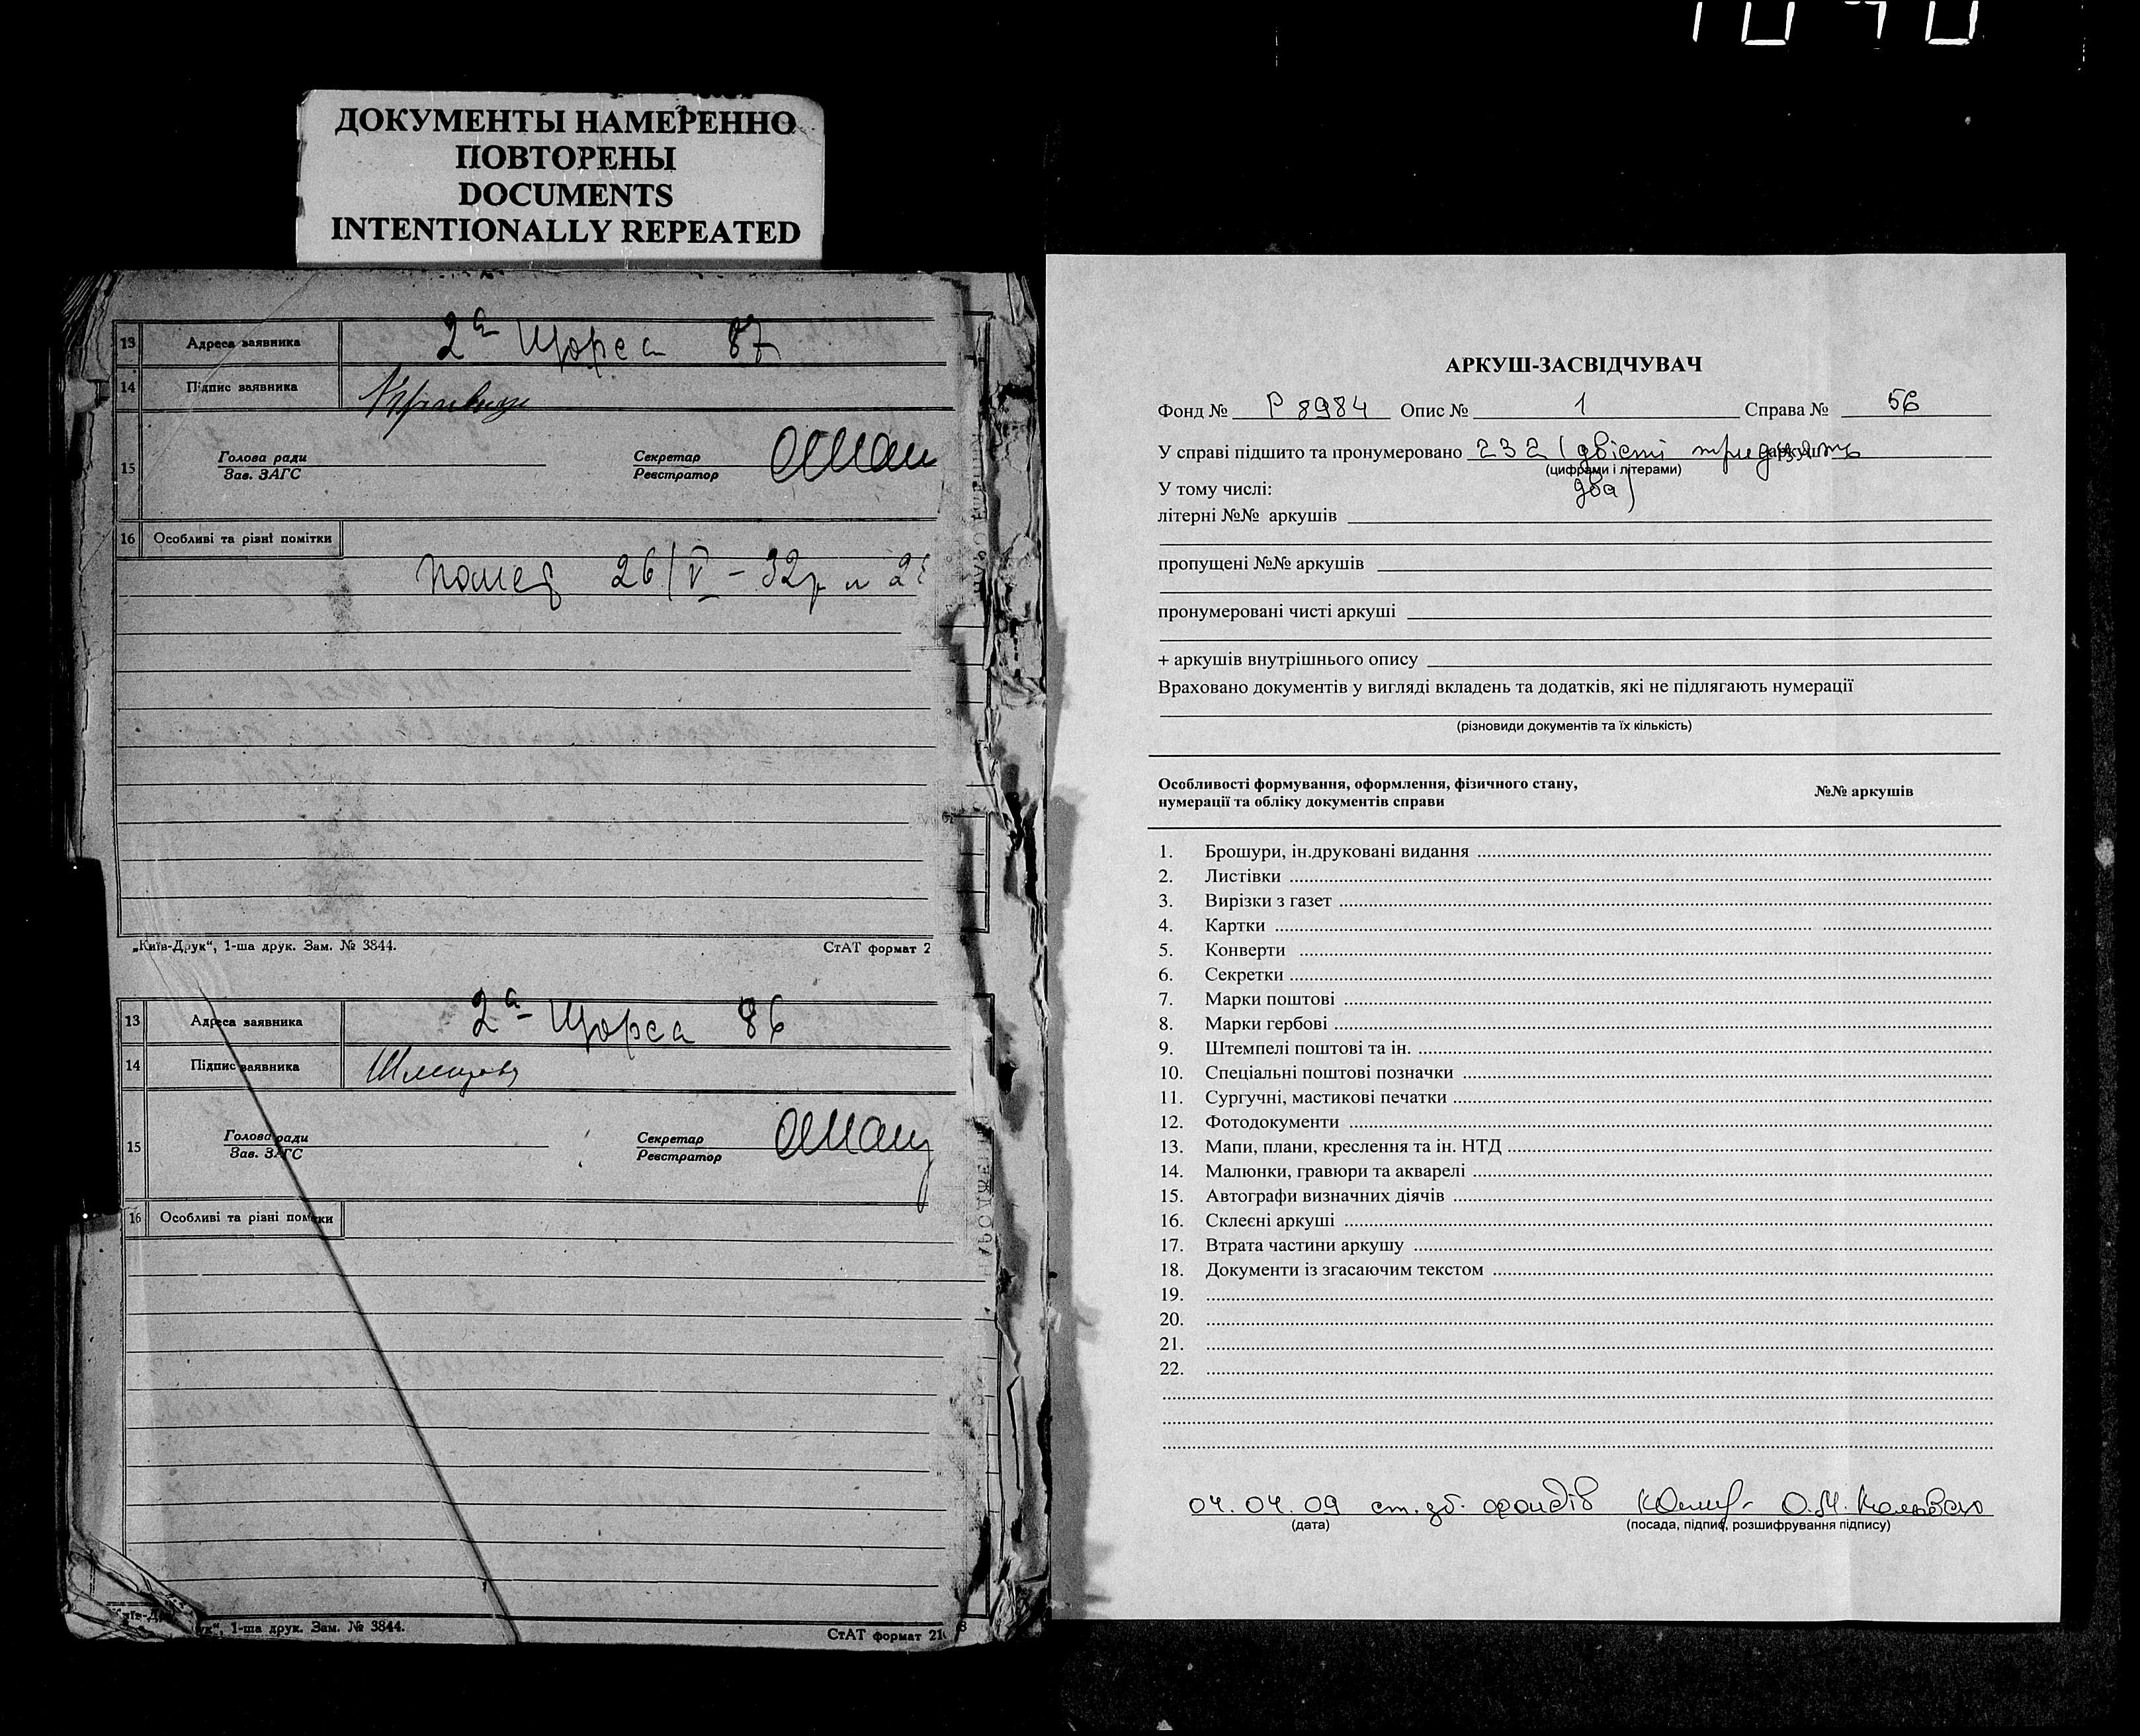 ДОКУМЕНТЫ НАМЕРЕННО
ПОВТОРЕНЫ
DOCUMENTS
INTENTIONALLY REPEATED
13 Адреса заявника 2а Щорса 87
14 Підпис заявника
15 Голова ради Секретар
Зав. ЗАГС Реєстратор
16 Особливі та різні помітки
26/V - 32р
„Київ-Друк“, 1-ша друк. Зам. № 3844. СтАТ формат 2
13 Адреса заявника 2а Щорса 86
14 Підпис заявника
15 Голова ради Секретар
Зав. ЗАГС Реєстратор
16 Особливі та різні помітки
1-ша друк. Зам. № 3844. СтАТ формат 21
АРКУШ-ЗАСВІДЧУВАЧ
Фонд № Р 8984 Опис № 1 Справа № 56
У справі підшито та пронумеровано 232 (двісті тридцять аркушів
(цифрами і літерами)
два)
У тому числі:
літерні №№ аркушів
пропущені №№ аркушів
пронумеровані чисті аркуші
+ аркушів внутрішнього опису
Враховано документів у вигляді вкладень та додатків, які не підлягають нумерації
(різновиди документів та їх кількість)
Особливості формування, оформлення, фізичного стану,
нумерації та обліку документів справи №№ аркушів
1. Брошури, ін.друковані видання
2. Листівки
3. Вирізки з газет
4. Картки
5. Конверти
6. Секретки
7. Марки поштові
8. Марки гербові
9. Штемпелі поштові та ін.
10. Спеціальні поштові позначки
11. Сургучні, мастикові печатки
12. Фотодокументи
13. Мапи, плани, креслення та ін. НТД
14. Малюнки, гравюри та акварелі
15. Автографи визначних діячів
16. Склеєні аркуші
17. Втрата частини аркушу
18. Документи із згасаючим текстом
19.
20.
21.
22.
04.04.09 ст. зб. фондів О.М.
(дата) (посада, підпис, розшифрування підпису)